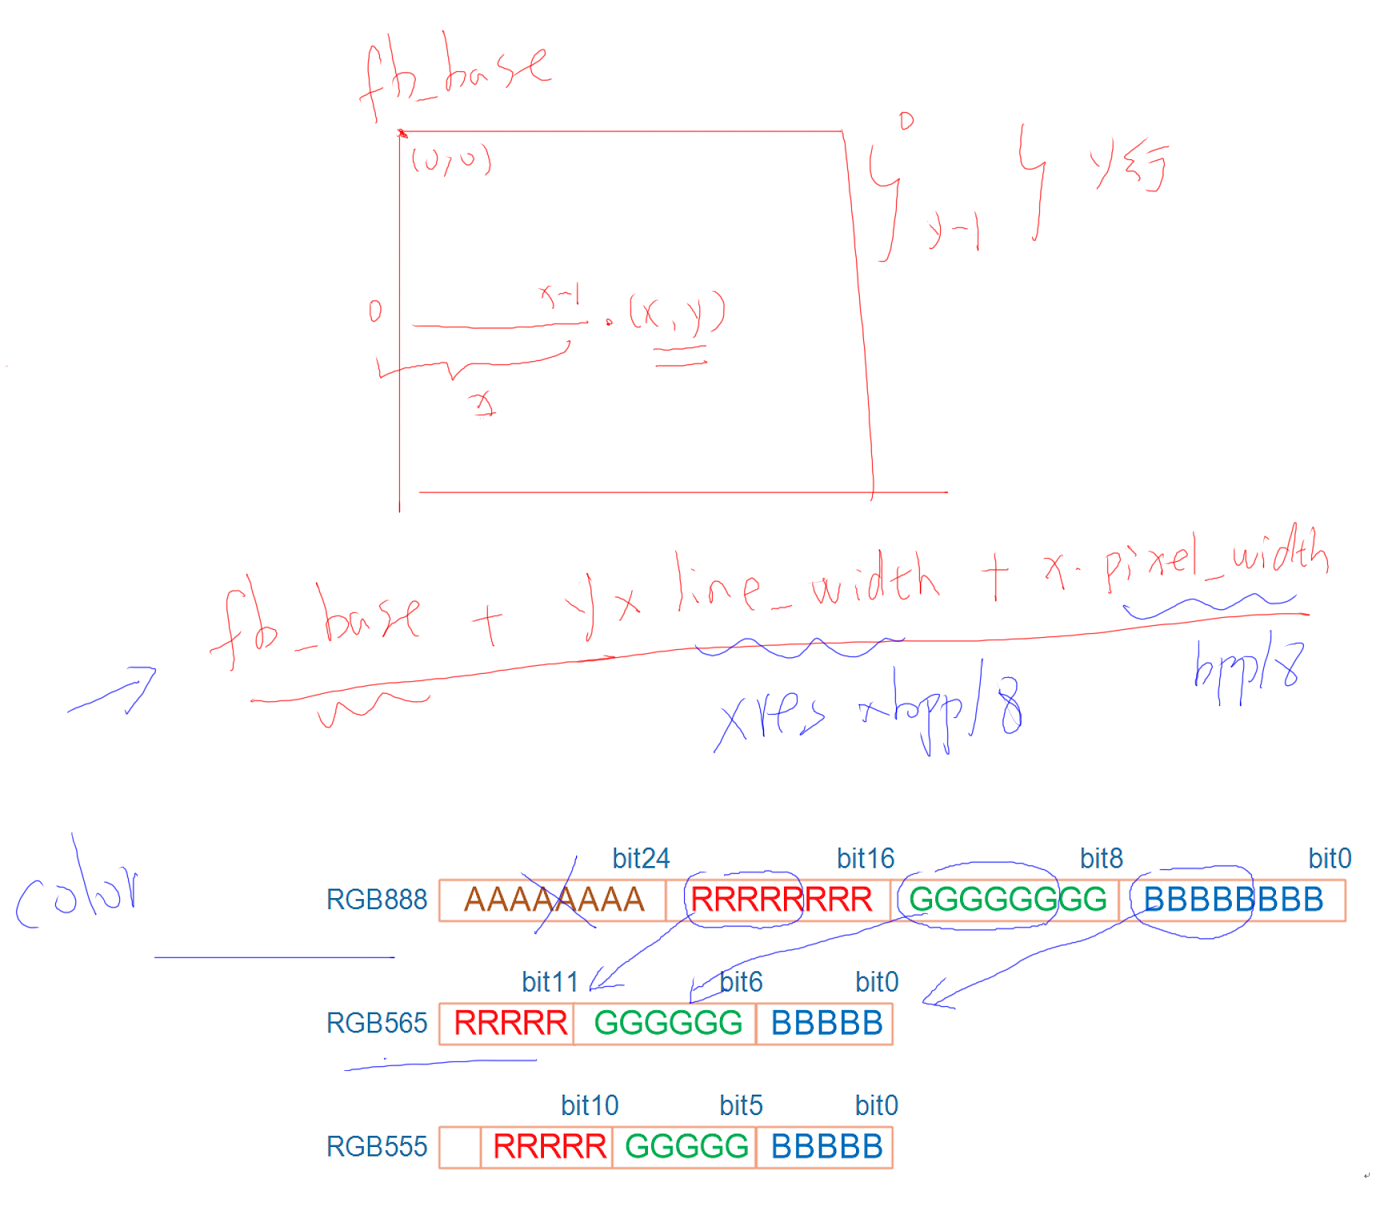 fb_base
(0,0)
0
y-1
y行
0
x-1
(x,y)
x
fb_base + y x line_width + x · pixel_width
xres x bpp/8
bpp/8
color
bit24 bit16 bit8 bit0
RGB888 AAAAAAAA RRRRRRRR GGGGGGGG BBBBBBBB
bit11 bit6 bit0
RGB565 RRRRR GGGGGG BBBBB
bit10 bit5 bit0
RGB555 RRRRR GGGGG BBBBB